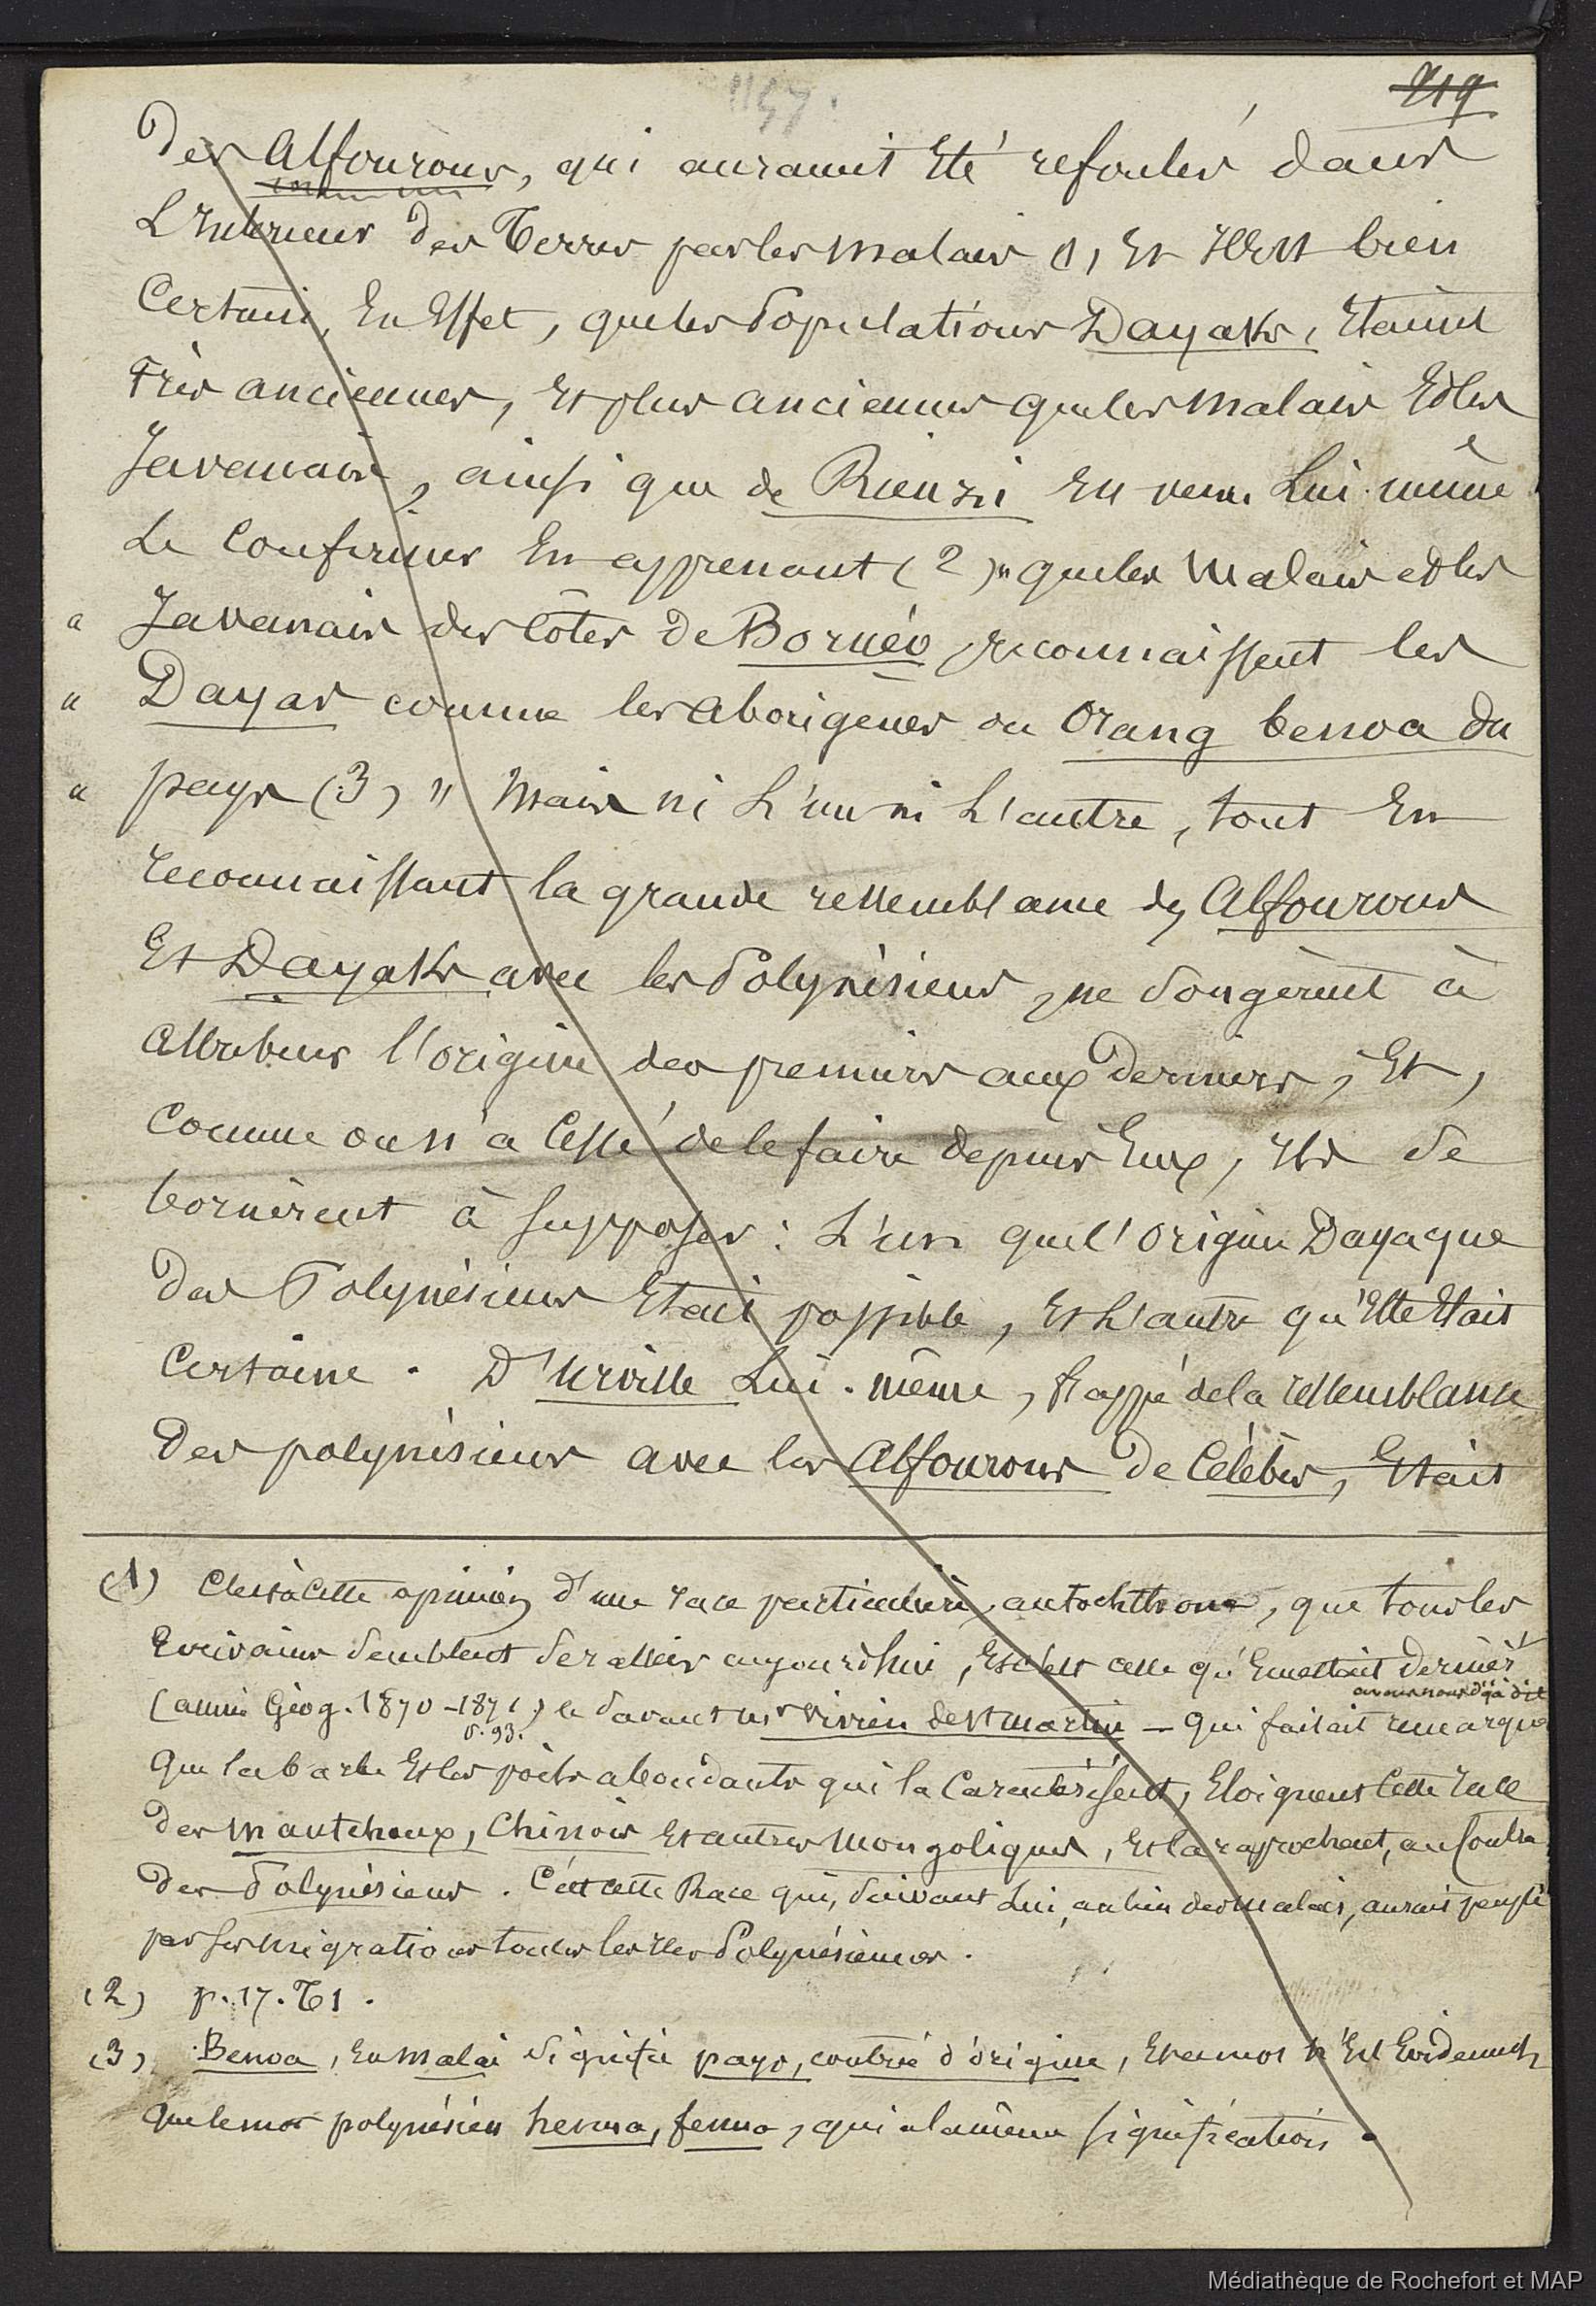 1157.
219
Des Alfourous, qui auraient été refoulés dans
L'Intérieur des Terres par les malais (1), Et Il Est bien
Certain, En Effet, que les Populations Dayaks, Etaient
Très anciennes, Et plus anciennes que les malais Et les
Javanais, ainsi que de Rienzi En venu Lui-même
Le Confirmer En apprenant (2) " que les Malais et les
" Javanais des Côtes de Bornéo, reconnaissent les
" Dayas comme les aborigènes ou Orang benoa du
" pays (3) " Mais ni L'un ni L'autre, tout En
reconnaissant la grande ressemblance des Alfourous
Et Dayaks avec les Polynésiens, ne Songèrent à
attribuer l'origine des premiers aux Derniers, Et,
Comme on n'a Cessé de le faire depuis Eux, Ils Se
bornèrent à supposer : L'un que l'origine Dayaque
Des Polynésiens Etait possible, Et L'autre qu'Elle Etait
Certaine. D'Urville Lui-même, frappé de la ressemblance
Des polynésiens avec les Alfourous De Célèbes, Etait
(1) C'est à Cette opinion d'une race particulière, autochthone, que tous les
Ecrivains Semblent Se rallier aujourd'hui, Et c'est celle qu'Emettait dernièrt
avons nous déjà dit
(année Géog. 1870-1871.) le Savant mr Vivien de St martin — qui faisait remarquer
p. 93.
Que la barbe Et les poils abondants qui la Caractérisent, Eloignent Cette race
Des mantchoux, Chinois Et autres Mongoliques, Et la rapprochent, au Contre
Des Polynésiens. C'est cette Race qui, Suivant Lui, au lieu des malais, aurait peuplé
par ses migrations toutes les Iles Polynésiennes.
(2) p. 17. T 1.
(3) Benoa, En malai Signifie pays, contrée d'origine, Et ce mot n'Est Evidemmt
Que le mot polynésien henua, fenua, qui a la même signification.
Médiathèque de Rochefort et MAP